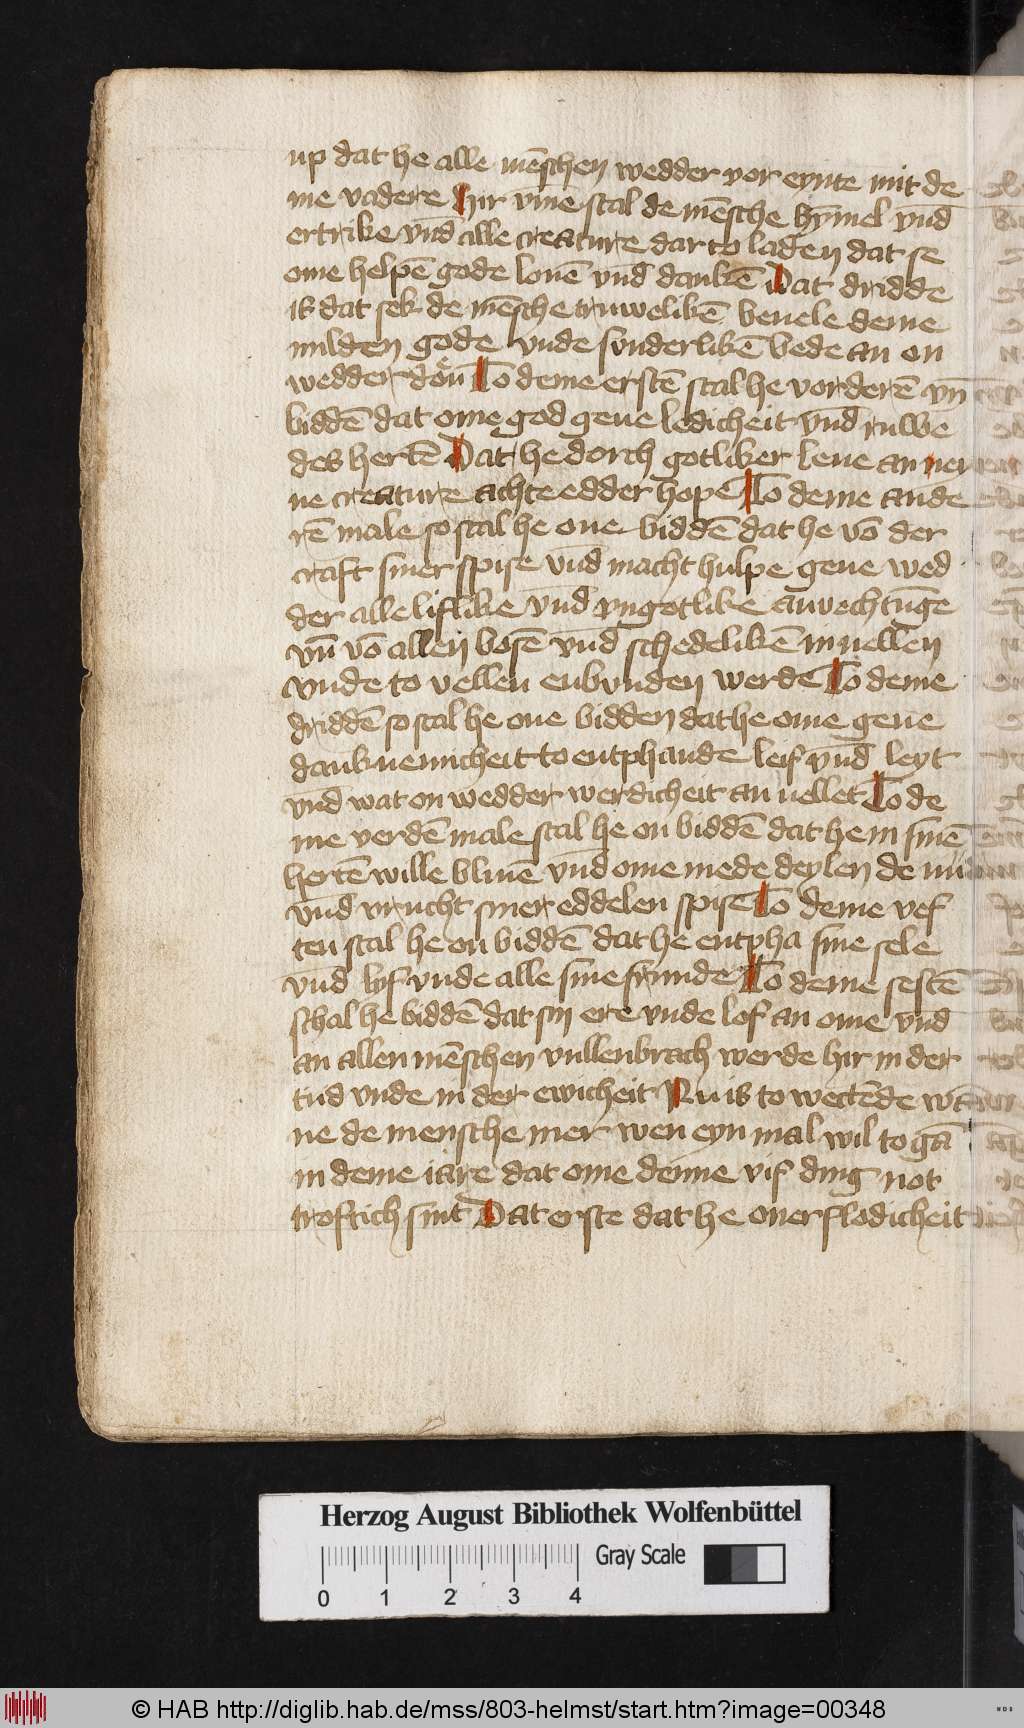 up dat he alle mēschen wedder vor eynte mit de
me vadere Hir vm̄e scal de mēsche hȳmel vn̄d
ertrike vn̄d alle creature dar to laden dat se
ome helpē gode louē vn̄d dankē Dat dridde
is dat sek de mēsche truwelikē beuele deme
milden gode vnde sunderlikē bede an on
wedder To deme erstē scal he vorderē vn̄
biddē dat ome god geue ledicheit vn̄d ruwe
des hertē Dat he dorch gotliker leue an ney
ne creature achte edder hope To deme ande
rē male so scal he one biddē dat he vō der
craft siner spise vn̄d macht hulpe geue wed
der alle liflike vn̄d vngotlike anuechtūge
vn̄ vō allen bosē vn̄d schedelikē in uellen
vnde to vellen enbunden werde To deme
driddē so scal he one bidden dat he ome geue
danknemicheit to entphande leif vn̄d leyt
vn̄d wat on wedder werdicheit an uellet To de
me verdē male scal he on biddē dat he in sinē
hertē wille bliuē vn̄d ome mede deylen de
vn̄d vrucht siner eddelen spise To deme vef
ten scal he on biddē dat he entpha sine sele
vn̄d lyf vnde alle sine frunde To deme sestē
schal he biddē dat sin ere vnde lof an ome vn̄d
an allen mēschen vullenbrach werde hir in der
tiid vnde in der ewicheit Nu is to wetēde wā
ne de mensche mer wen eyn mal wil to gā
in deme iare dat ome denne vif ding not
troftich sint Dat erste dat he ouerflodicheit
Herzog August Bibliothek Wolfenbüttel
Gray Scale
0 1 2 3 4
© HAB http://diglib.hab.de/mss/803-helmst/start.htm?image=00348